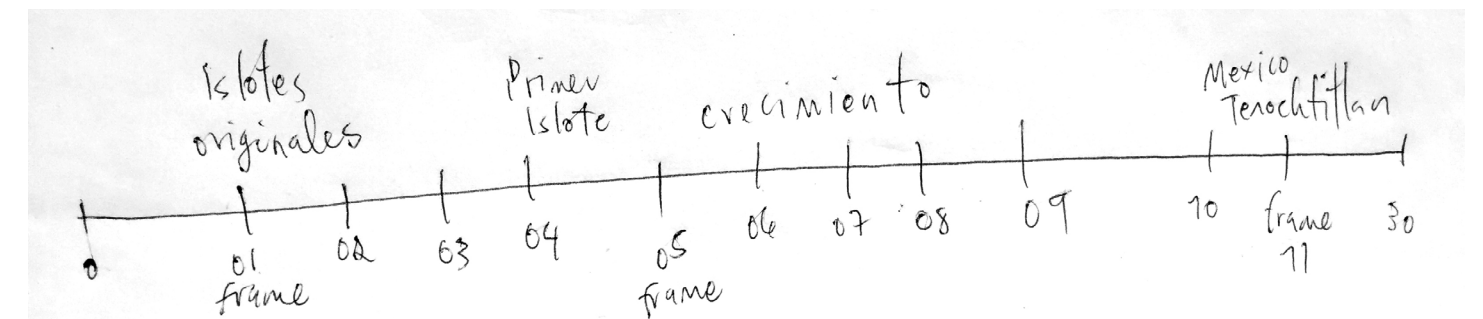 Islotes
originales
Primer
Islote
crecimiento
Mexico
Tenochtitlan
0
01
frame
02
03
04
05
frame
06
07
08
09
10
frame
11
30